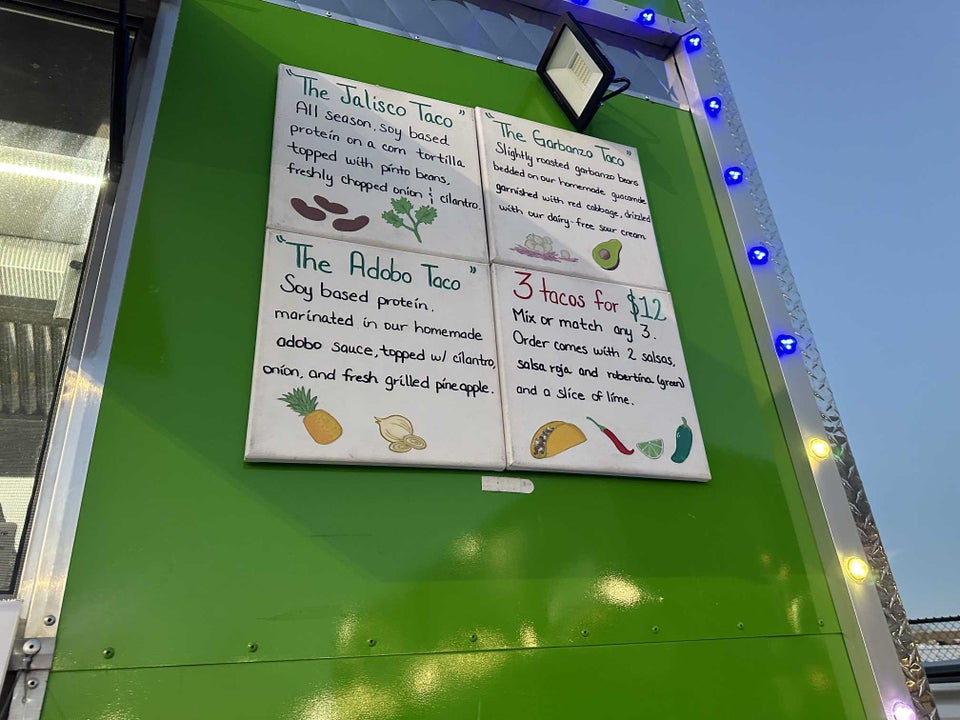 "The Jalisco Taco"
All season, soy based
protein on a corn tortilla
topped with pinto beans,
freshly chopped onion & cilantro.
"The Garbanzo Taco"
Slightly roasted garbanzo beans
bedded on our homemade guacamole
garnished with red cabbage, drizzled
with our dairy-free sour cream
"The Adobo Taco"
Soy based protein,
marinated in our homemade
adobo sauce, topped w/ cilantro,
onion, and fresh grilled pineapple.
3 tacos for $12
Mix or match any 3.
Order comes with 2 salsas,
salsa roja and robertina (green)
and a slice of lime.